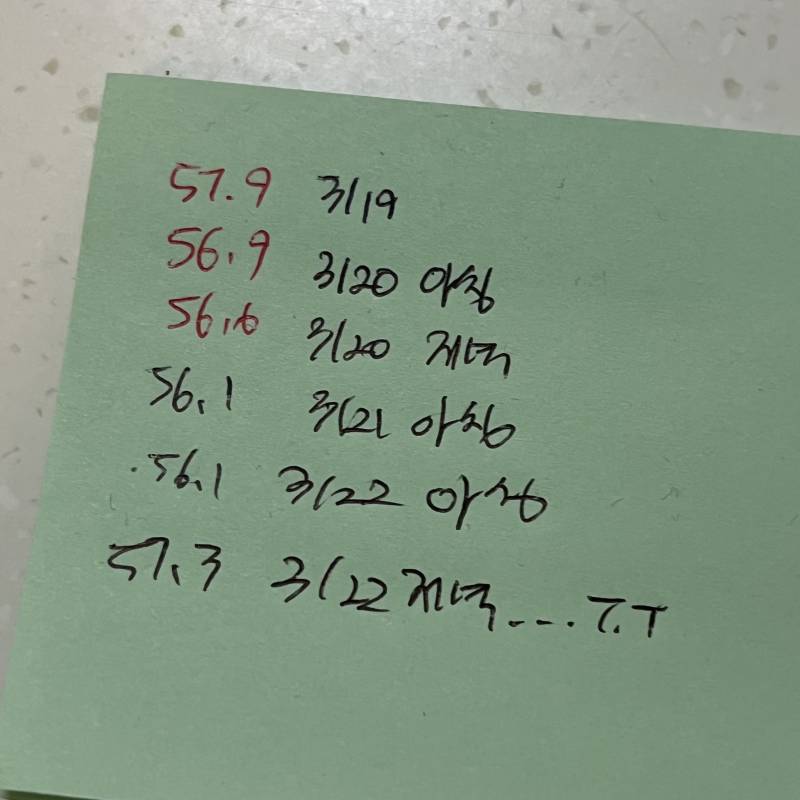 57.9 3/19
56.9 3/20 아침
56.6 3/20 저녁
56.1 3/21 아침
56.1 3/22 아침
57.3 3/22 저녁.... T.T